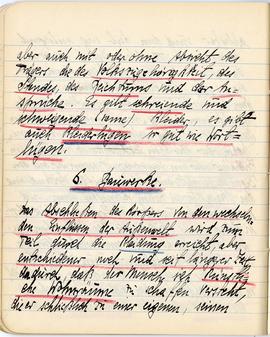 aber auch mit oder ohne Absicht, des
Trägers die der Volkszugehörigkeit, des
Landes, des Reichtums und der An-
sprüche. Es gibt schreiende und
schweigende Kleider, es gibt
auch Kleiderlügen so gut wie Wort-
lügen.
6. Bauwerke.
Das Abschließen des Körpers von den wechseln-
den Einflüssen der Außenwelt wird zum
Teil durch die Kleidung erreicht, aber
entschiedener noch und seit langer Zeit
dadurch, daß der Mensch sich künstli-
che Wohnräume zu schaffen versteht,
die er schließlich zu einer eigenen, seinen